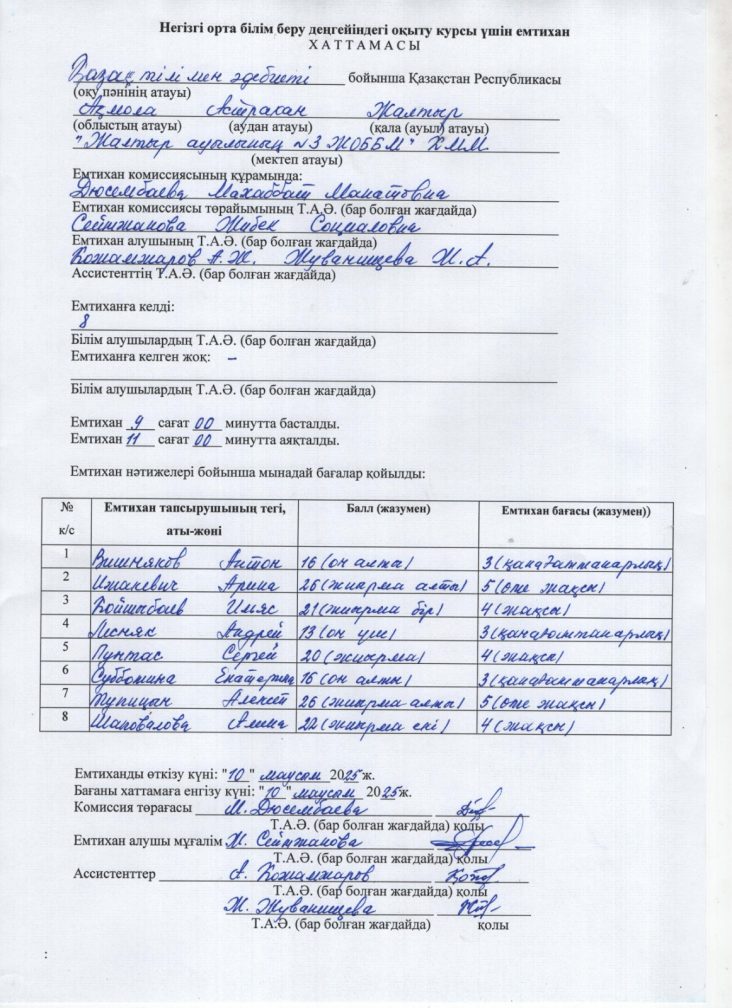 Негізгі орта білім беру деңгейіндегі оқыту курсы үшін емтихан
ХАТТАМАСЫ
Қазақ тілі мен әдебиеті бойынша Қазақстан Республикасы
(оқу пәнінің атауы)
Ақмола Астрахан Жалтыр
(облыстың атауы) (аудан атауы) (қала (ауыл) атауы)
"Жалтыр ауылының №3 ЖОББМ" КММ
(мектеп атауы)
Емтихан комиссиясының құрамында:
Дюсембаева Махаббат Манатовна
Емтихан комиссиясы төрайымының Т.А.Ә. (бар болған жағдайда)
Сейтжанова Жибек Социаловна
Емтихан алушының Т.А.Ә. (бар болған жағдайда)
Кожамжаров А.Ж. Жуванищева Ж.А.
Ассистенттің Т.А.Ә. (бар болған жағдайда)
Емтиханға келді:
8
Білім алушылардың Т.А.Ә. (бар болған жағдайда)
Емтиханға келген жоқ: –
Білім алушылардың Т.А.Ә. (бар болған жағдайда)
Емтихан 9 сағат 00 минутта басталды.
Емтихан 11 сағат 00 минутта аяқталды.
Емтихан нәтижелері бойынша мынадай бағалар қойылды:
№ к/с Емтихан тапсырушының тегі, аты-жөні Балл (жазумен) Емтихан бағасы (жазумен))
1 Вишняков Антон 16 (он алты) 3 (қанағаттанарлық)
2 Ижаневич Арина 26 (жиырма алты) 5 (өте жақсы)
3 Койшибаев Ильяс 21 (жиырма бір) 4 (жақсы)
4 Лесняк Андрей 13 (он үш) 3 (қанағаттанарлық)
5 Пунтас Сергей 20 (жиырма) 4 (жақсы)
6 Субботина Екатерина 16 (он алты) 3 (қанағаттанарлық)
7 Тупицын Алексей 26 (жиырма алты) 5 (өте жақсы)
8 Шаповалова Алина 22 (жиырма екі) 4 (жақсы)
Емтиханды өткізу күні: "10" маусым 2025 ж.
Бағаны хаттамаға енгізу күні: "10" маусым 2025 ж.
Комиссия төрағасы М. Дюсембаева
Т.А.Ә. (бар болған жағдайда) қолы
Емтихан алушы мұғалім Ж. Сейтжанова
Т.А.Ә. (бар болған жағдайда) қолы
Ассистенттер А. Кожамжаров
Т.А.Ә. (бар болған жағдайда) қолы
Ж. Жуванищева
Т.А.Ә. (бар болған жағдайда) қолы
: